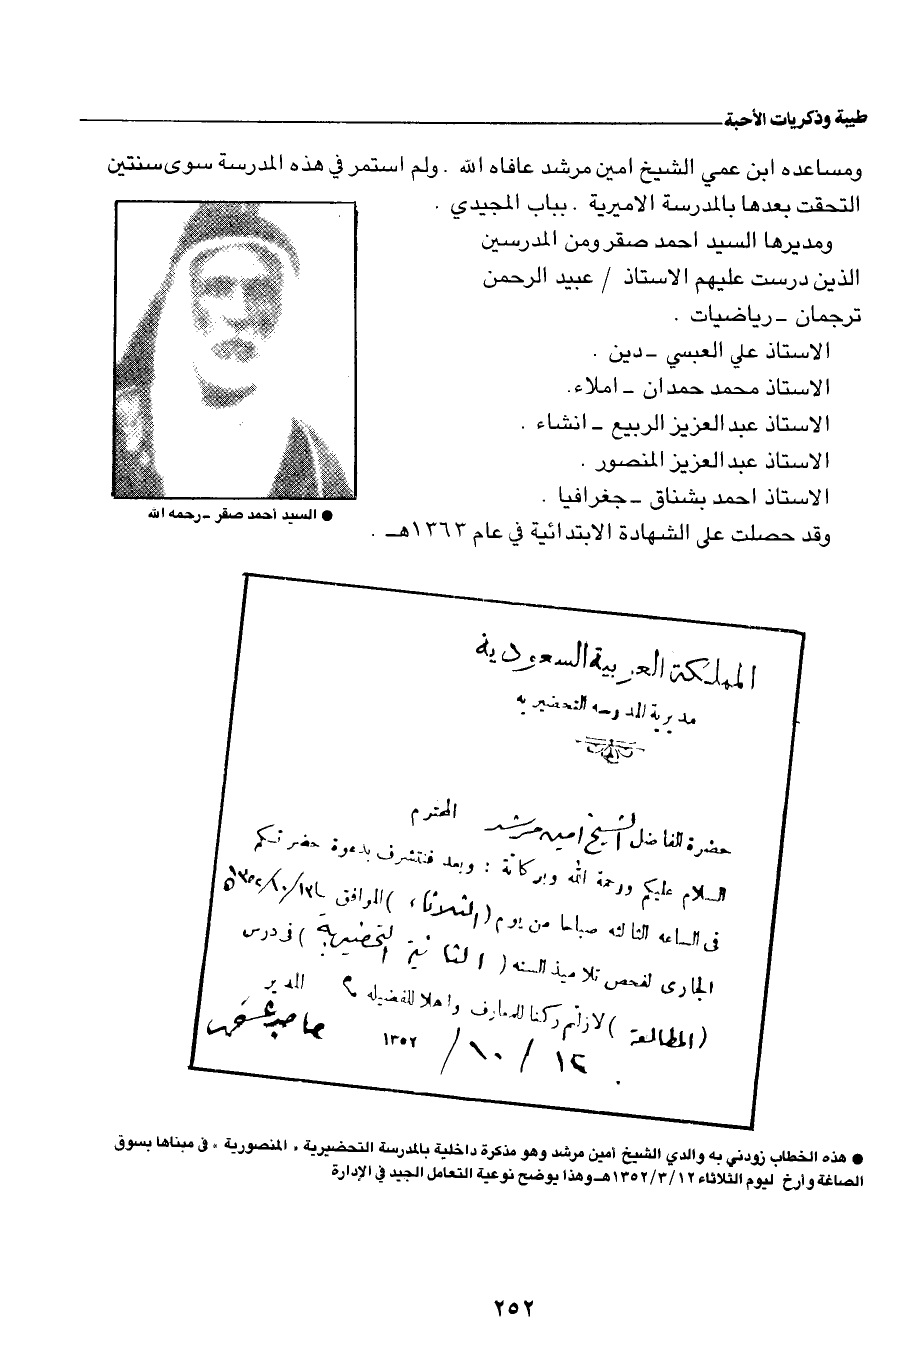 طيبة وذكريات الأحبة
ومساعده ابن عمي الشيخ امين مرشد عافاه الله . ولم استمر في هذه المدرسة سوى سنتين
التحقت بعدها بالمدرسة الاميرية . بباب المجيدي .
ومديرها السيد احمد صقر ومن المدرسين
الذين درست عليهم الاستاذ / عبيد الرحمن
ترجمان - رياضيات .
الاستاذ علي العبسي - دين .
الاستاذ محمد حمدان - املاء.
الاستاذ عبد العزيز الربيع - انشاء .
الاستاذ عبد العزيز المنصور .
الاستاذ احمد بشناق - جغرافيا .
وقد حصلت على الشهادة الابتدائية في عام ١٣٦٣هـ .
● السيد أحمد صقر - رحمه الله
المملكة العربية السعودية
مديرية المدرسه التحضيريه
حضرة الفاضل الشيخ امين مرشد المحترم
السلام عليكم ورحمة الله وبركاته : وبعد فنتشرف بدعوة حضرتكم
في الساعه الثالثه صباحا من يوم ( الثلاثاء ) الموافق
الجارى لفحص تلاميذ السنه ( الثانية التحضيرية ) في درس
( المطالعة ) لازلتم ركنا للمعارف واهلا للفضيله المدير
١٢ / ١٠ / ١٣٥٢
● هذه الخطاب زودني به والدي الشيخ أمين مرشد وهو مذكرة داخلية بالمدرسة التحضيرية « المنصورية » في مبناها بسوق
الصاغة وأرخ ليوم الثلاثاء ١٣٥٢/٣/١٢هـ وهذا يوضح نوعية التعامل الجيد في الإدارة
٢٥٢